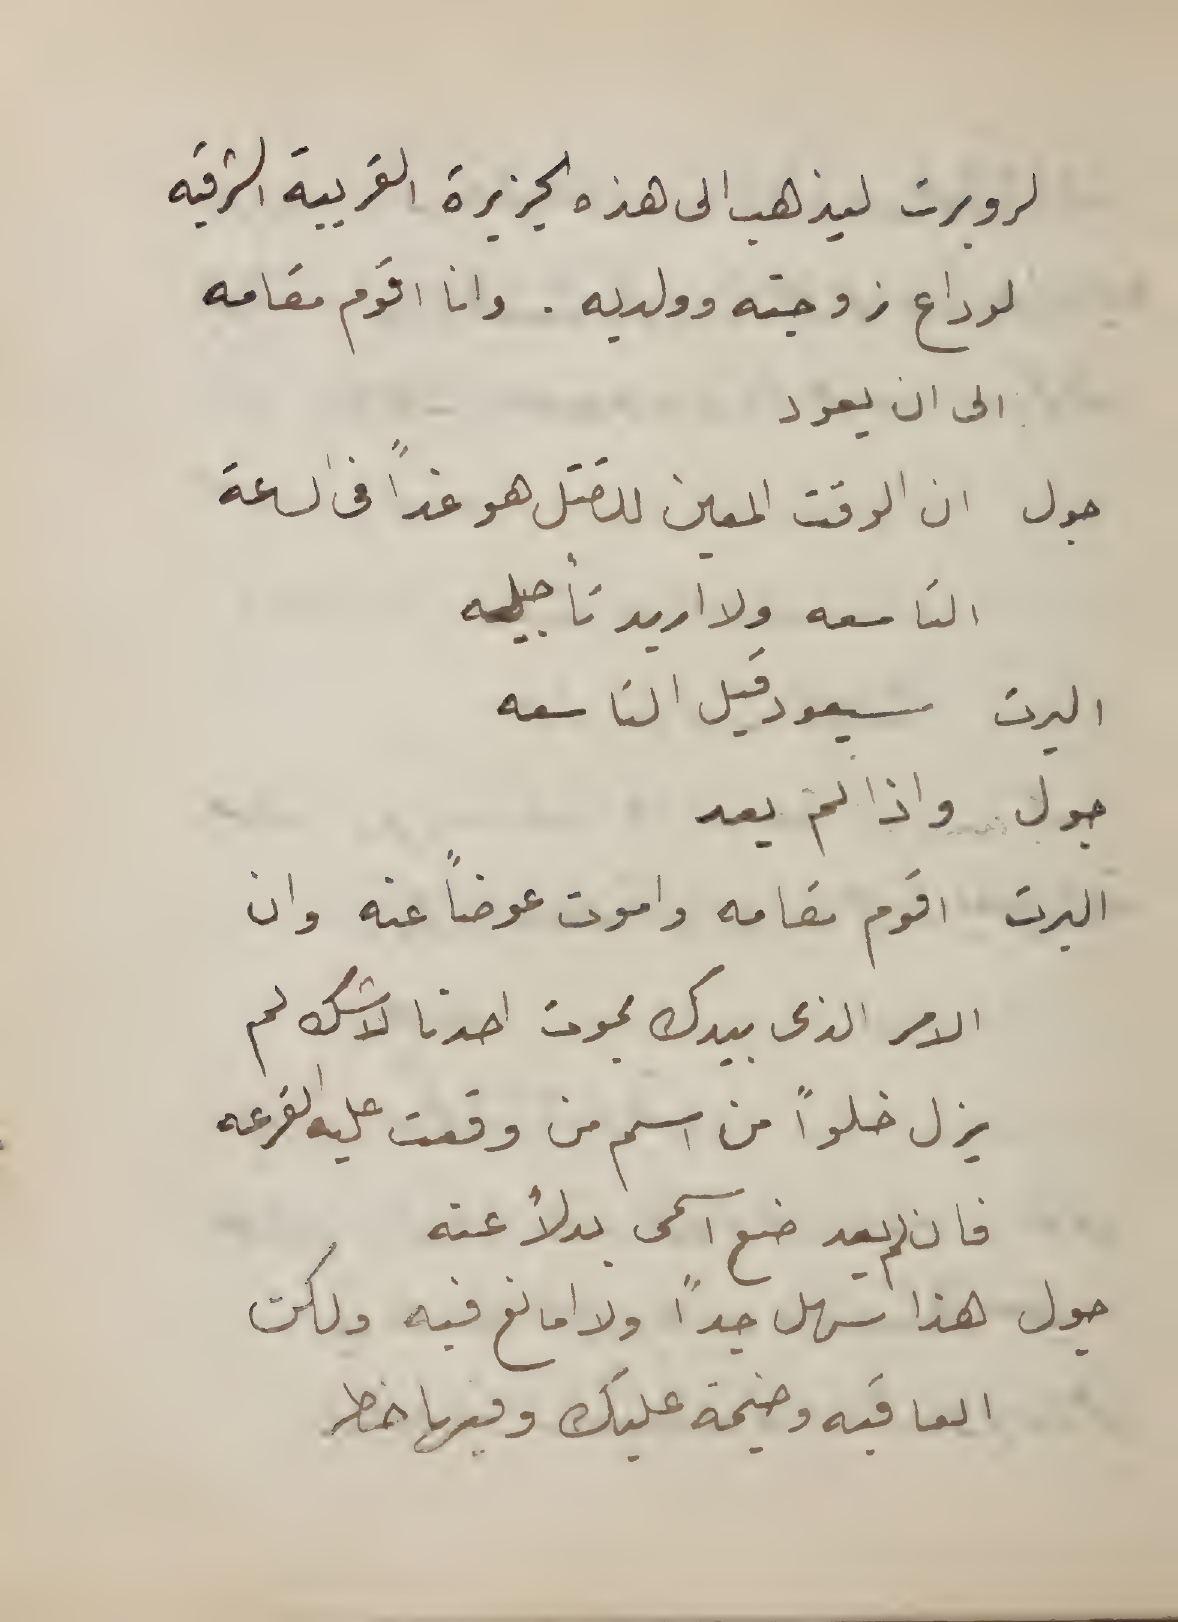 لروبرت ليذهب الى هذه الجزيرة القريبة الشرقيه
لوداع زوجته وولديه . وانا اقوم مقامه
الى ان يعود
جول ان الوقت المعين للقتل هو غداً فى الساعة
التاسعه ولا اريد تأجيله
البرت سيعود قبل التاسعه
جول واذا لم يعد
البرت اقوم مقامه واموت عوضاً عنه وان
الامر الذى بيدك بموت احدنا لاشك لم
يزل خلواً من اسم من وقعت عليه القرعه
فان لم يعد ضع اسمى بدلاً عنه
جول هذا سهل جداً ولا امانع فيه ولكن
العاقبه وخيمة عليك وفيها خطر